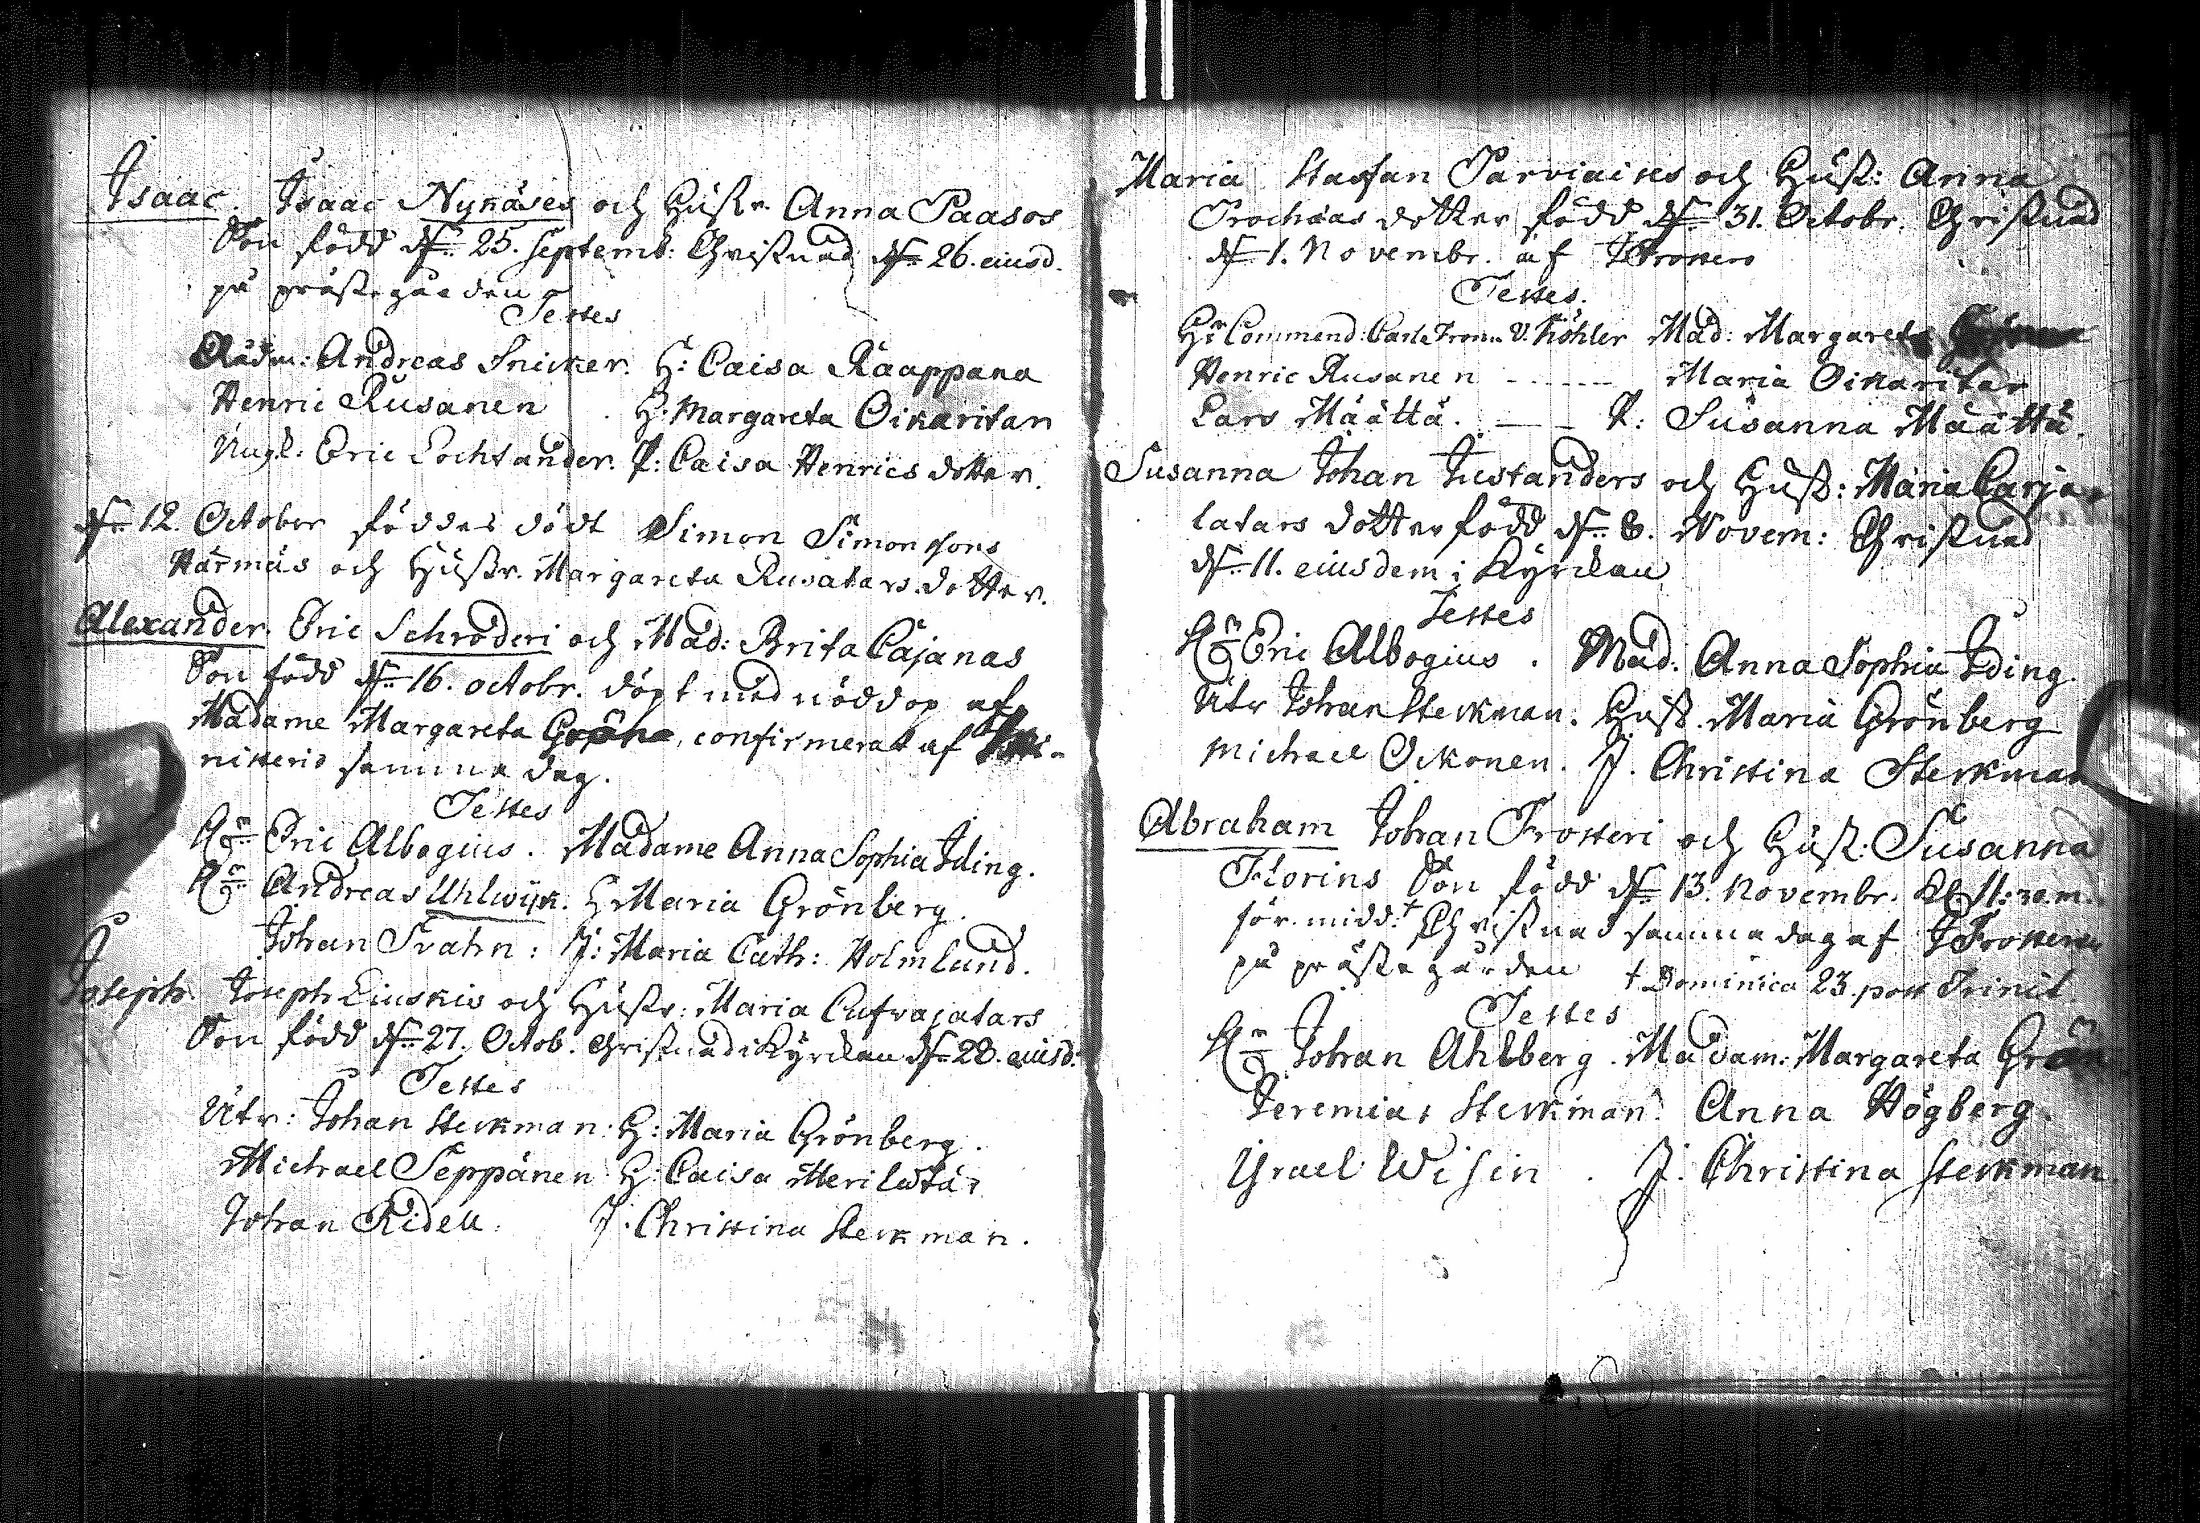 Isaac. Isaac Nykäses och Hustr. Anna Paasos
Son född d. 25. Septemb: Christnad d. 26. eiusd.
på prästegården
Testes
Rådm: Andreas Snicker. H: Caisa Räappana
Henric Rusanen. H: Margareta Oikaritar
Ungl: Eric Lochtander. P: Caisa Henrics dotter.
d. 12. October föddes dödt Simon Simonssons
Härmäs och Hustr. Margareta Rusatars dotter.
Alexander. Eric Schröderi och Mad: Brita Cajanas
Son född d. 16. octobr. döpt med nöddop af
Madame Margareta, confirmerat af
nisterio samma dag.
Testes
Hr Eric Albogius. Madame Anna Sophia Iding.
Hr Andreas Uhlwijk. H: Maria Grönberg.
Johan Svahn: J: Maria Cath: Holmlund.
Joseph. Joseph Liuskis och Hustr: Maria
Son född d. 27. Octob. Christnad i Kyrckan d. 28. eiusd:
Testes
Utr: Johan Steckman. H: Maria Grönberg.
Michael Seppänen H: Caisa
Johan Ridell. J. Christina Steckman.
Maria Staffan Parviaises och Hust: Anna
Trochäas dotter född d. 31. Octobr. Christnad
d. 1. Novembr. af J Frosters
Testes.
Hr Commend: Carl V. Köhler Mad: Margareta
Henric Rusanen ------ Maria Oikaritar
Lars Määttä. — — P: Susanna Määttä.
Susanna Johan Justanders och Hust: Maria Carja-
latars dotter född d. 8. Novem: Christnad
d. 11. eiusdem i Kyrckan
Testes
Hr Eric Albogius. Mad: Anna Sophia Iding.
Utr Johan Steckman. Hust. Maria Grönberg
Michael Ockonen. J. Christina Steckman
Abraham Johan Frosteri och Hust: Susanna
Florins Son född d. 13. Novembr. Kl. 11: 30 m.
för midd: † Christnad samma dag af J Frosterus
på prästegården † Dominica 23. post Trinit.
Testes
Hr Johan Ahlberg. Madam: Margareta
Jeremias Steckman. Anna Högberg.
Israel Wisin. J: Christina Steckman.